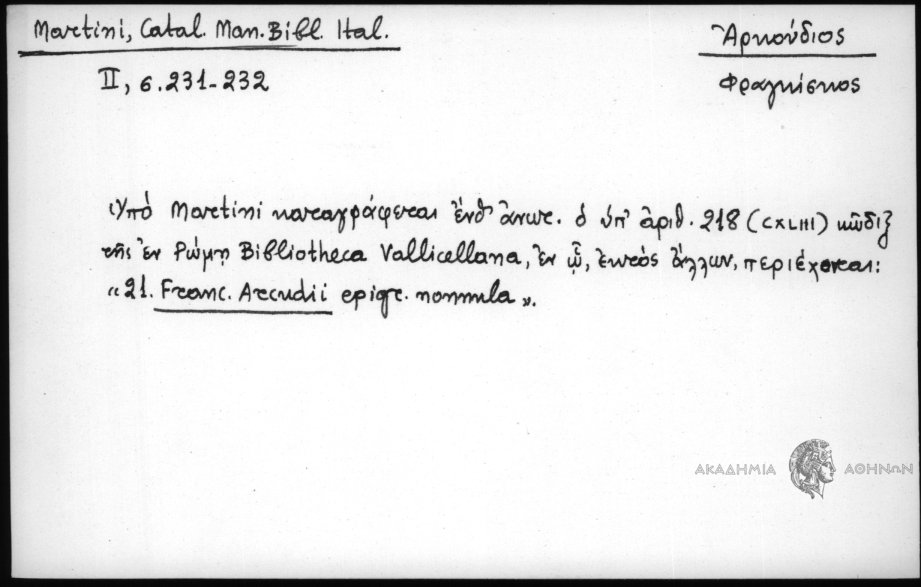 Martini, Catal. Man. Bibl. Ital.
II, σ. 231-232
Ἀρκούδιος
Φραγκίσκος
Ὑπὸ Martini καταγράφεται ἔνθ' ἀνωτ. ὁ ὑπ' ἀριθ. 218 (CXLIII) κῶδιξ
τῆς ἐν Ρώμῃ Bibliotheca Vallicellana, ἐν ᾧ, ἐκτὸς ἄλλων, περιέχονται:
«21. Franc. Arcudii epigr. nonnula».
ΑΚΑΔΗΜΙΑ ΑΘΗΝΩΝ